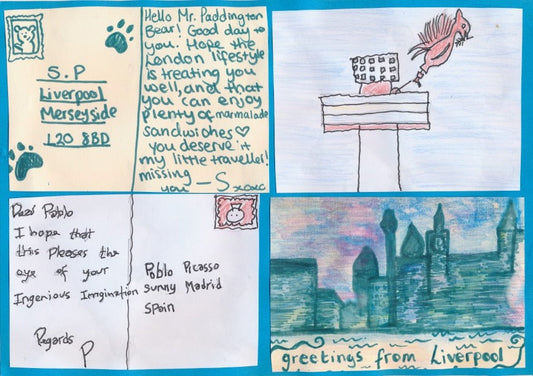 S.P
Liverpool
Merseyside
L20 8BD
Hello Mr. Paddington
Bear! Good day to
you. Hope the
London lifestyle
is treating you
well, and that
you can enjoy
plenty of marmalade
sandwiches
you deserve it
my little traveller!
missing
you - S xoxo
Dear Pablo
I hope that
this pleases the
eye of your
Ingenious Imagination
Regards
P
Pablo Picasso
Sunny Madrid
Spain
greetings from Liverpool